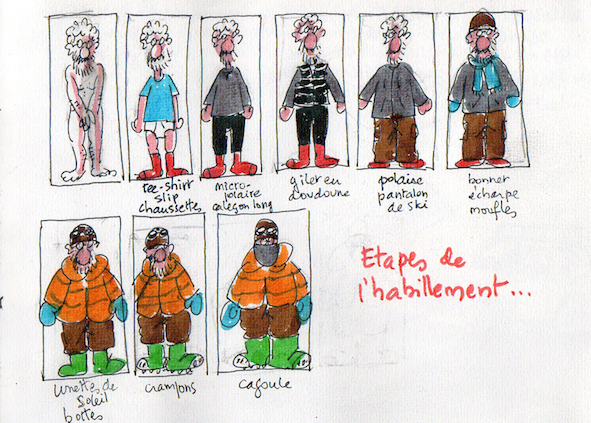 tee-shirt
slip
chaussettes
micro-
polaire
caleçon long
gilet en
doudoune
polaire
pantalon
de ski
bonnet
écharpe
moufles
lunettes de
soleil
bottes
crampons
cagoule
Etapes de
l'habillement...